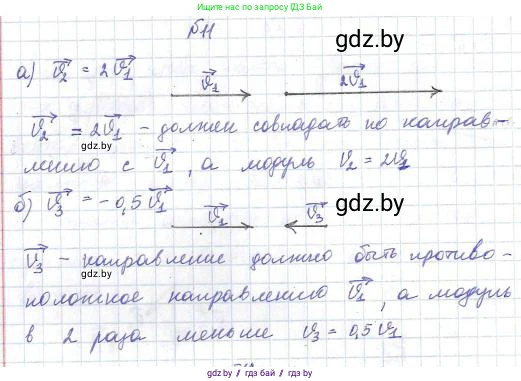 Ищите нас по запросу ГДЗ Бай
№11
gdz.by
а) υ₂ = 2υ₁
υ₁ 2υ₁
υ₂ = 2υ₁ - должен совпадать по направ-
лению с υ₁, а модуль υ₂ = 2υ₁
gdz.by
б) υ₃ = -0,5υ₁
υ₁ υ₃
υ₃ - направление должно быть противо-
положное направлению υ₁, а модуль
в 2 раза меньше υ₃ = 0,5υ₁
gdz.by
gdz by / гдз бай / gdz by